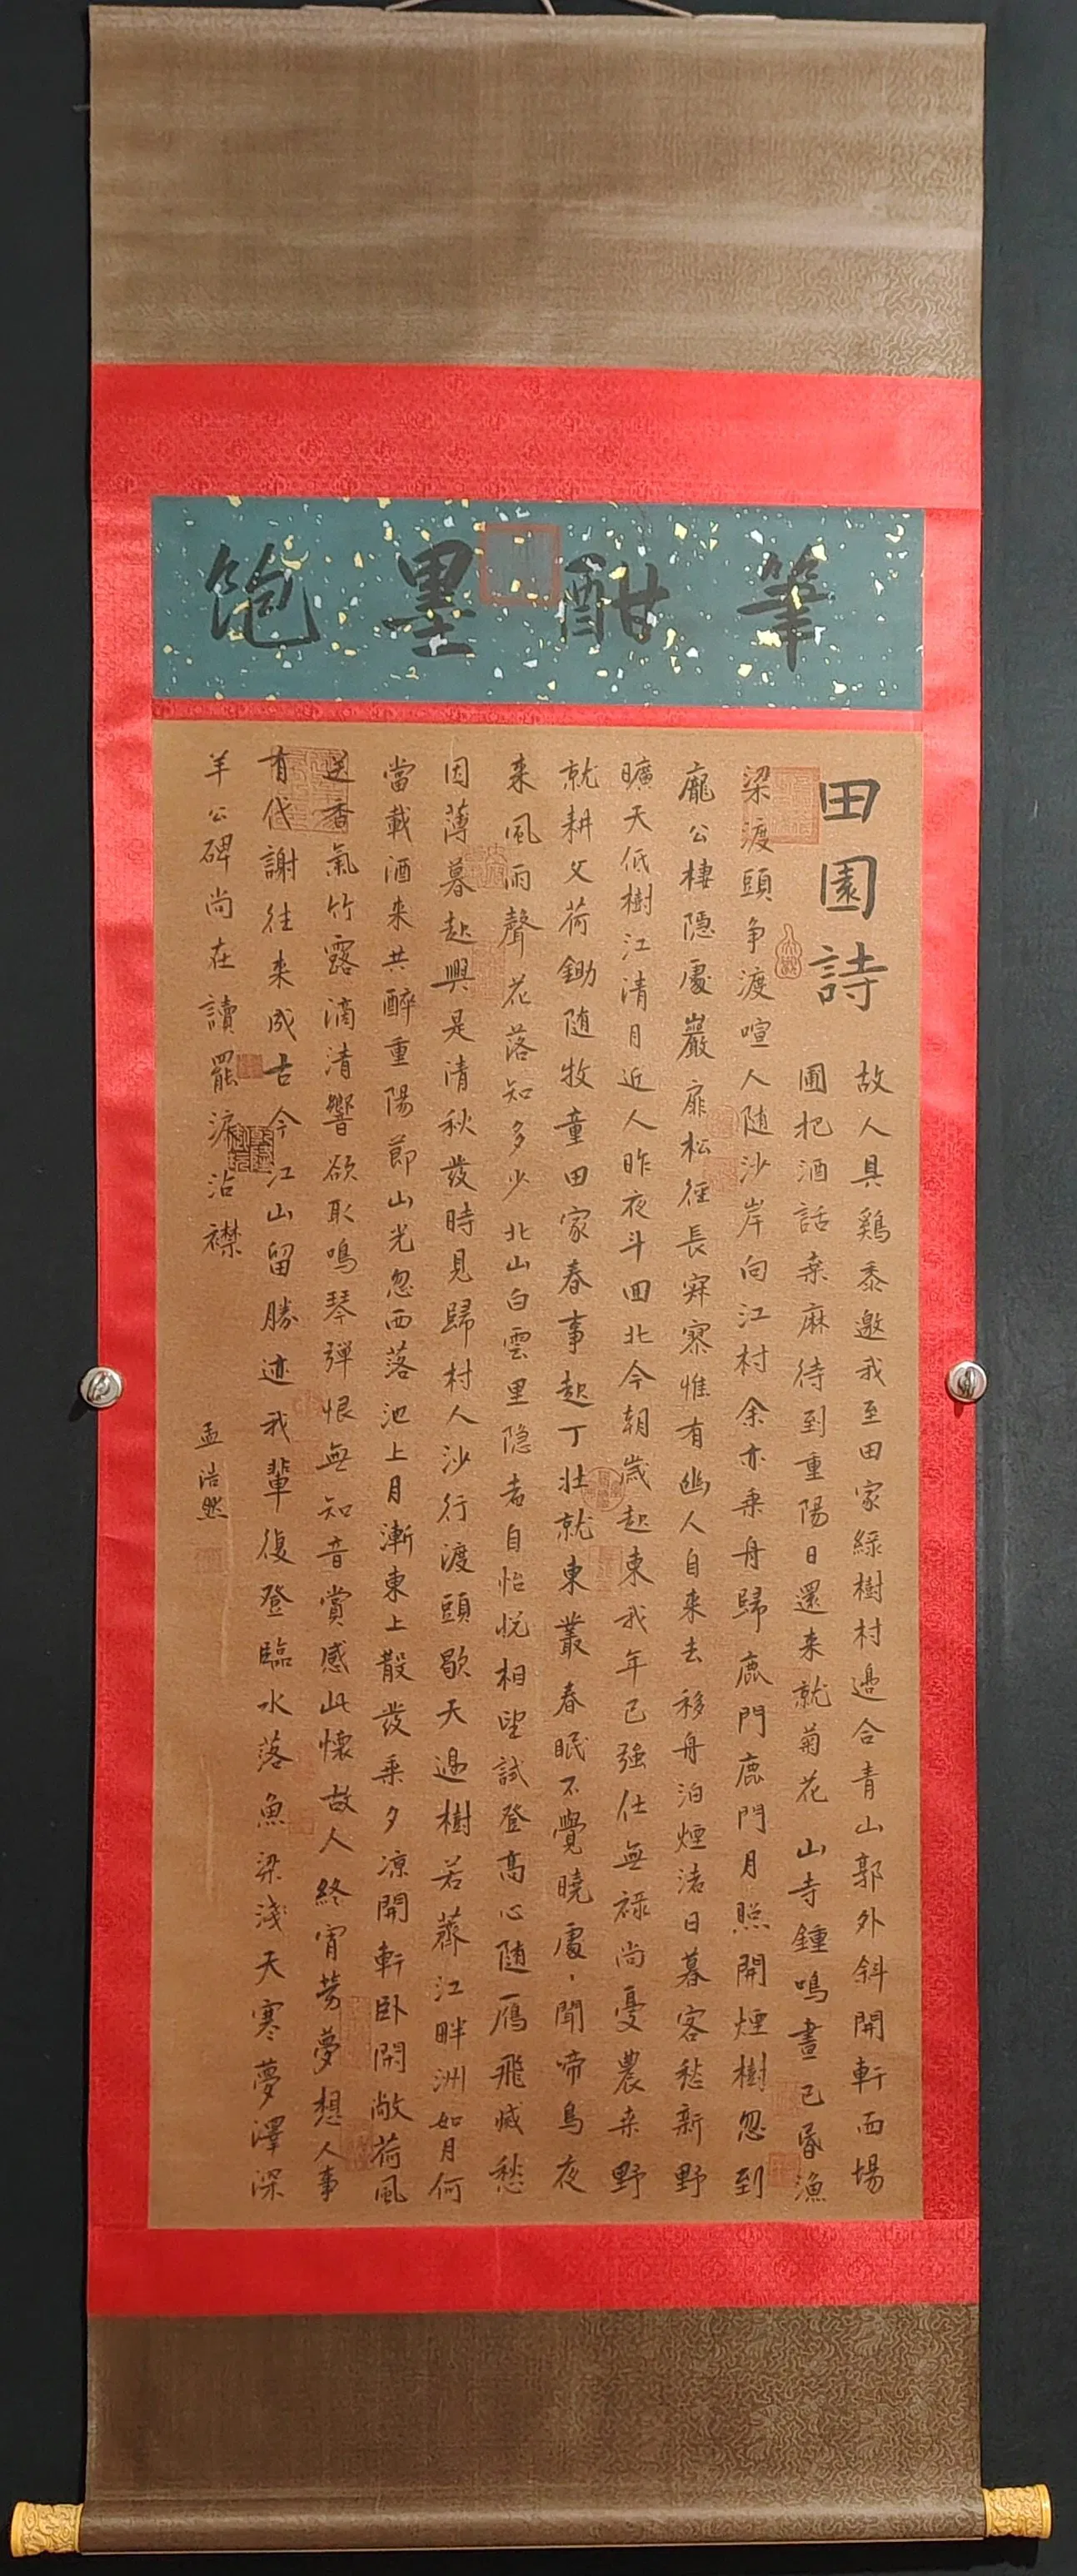 筆酣墨飽
田園詩
故人具鷄黍邀我至田家綠樹村邊合青山郭外斜開軒面場
圃把酒話桒麻待到重陽日還来就菊花 山寺鍾鳴晝已昏漁
梁渡頭争渡喧人随沙岸向江村余亦乗舟歸鹿門鹿門月照開煙樹忽到
龐公棲隱處巖扉松徑長寂寥惟有幽人自来去移舟泊煙渚日暮客愁新野
曠天低樹江清月近人昨夜斗回北今朝歲起東我年已强仕無禄尚憂農桒野
就耕父荷鋤随牧童田家春事起丁壯就東叢春眠不覺曉處、聞啼鳥夜
来風雨聲花落知多少北山白雲里隐者自怡悦相望試登髙心随雁飛滅愁
因薄暮起興是清秋發時見歸村人沙行渡頭歇天邊樹若薺江畔洲如月何
當載酒来共醉重陽節山光忽西落池上月漸東上散發乗夕凉開軒卧閑敞荷風
送香氣竹露滴清響欲取鳴琴彈恨無知音賞感此懷故人終宵勞夢想人事
有代謝往来成古今江山留勝迹我輩復登臨水落魚梁淺天寒夢澤深
羊公碑尚在讀罷淚沾襟
孟浩然